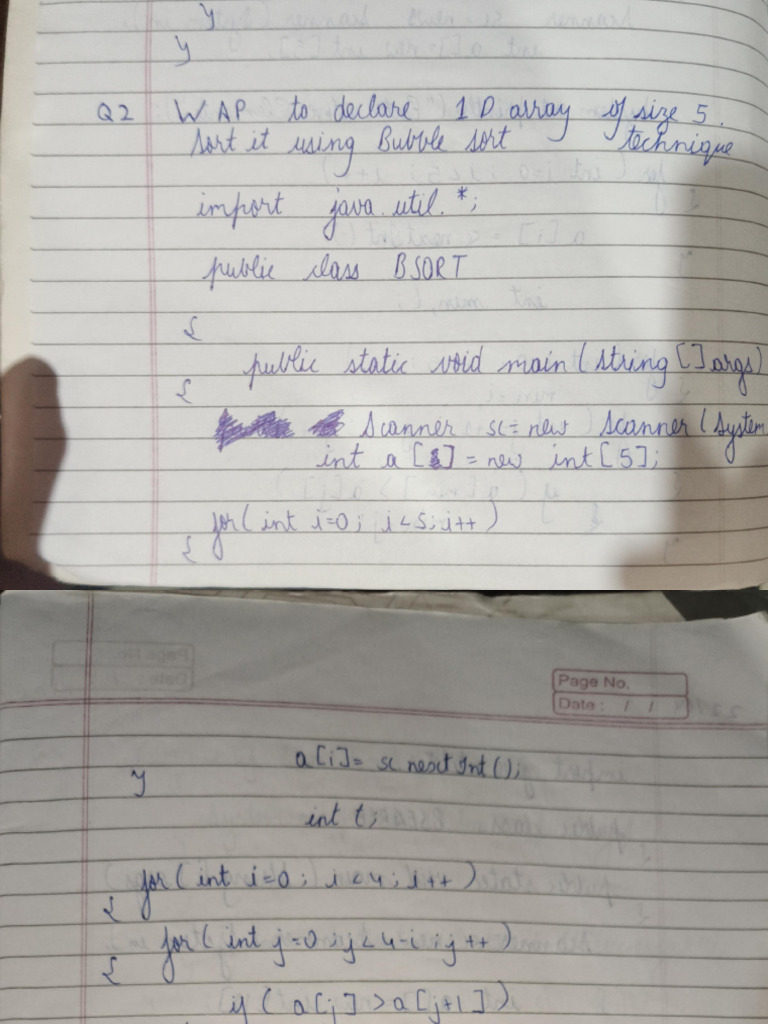 }
}
Q2 WAP to declare 1D array of size 5.
Sort it using Bubble sort technique
import java.util.*;
public class BSORT
{
public static void main(string[]args)
{
Scanner sc=new Scanner(System
int a[]=new int[5];
for(int i=0; i<5;i++)
{
Page No.
Date: / /
a[i]= sc.nextInt();
}
int t;
for(int i=0; i<4; i++)
{
for(int j=0;j<4-i;j++)
{
if(a[j]>a[j+1])